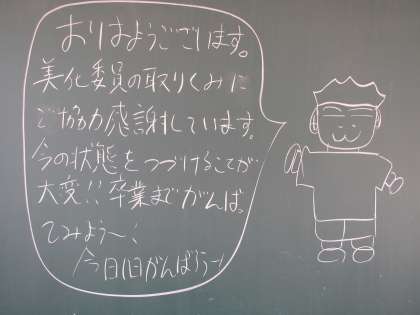 おはようございます。
美化委員の取りくみに
ご協力感謝しています。
今の状態をつづけることが
大変!!卒業までがんばっ
てみよう〜!
今日1日がんばろう〜!